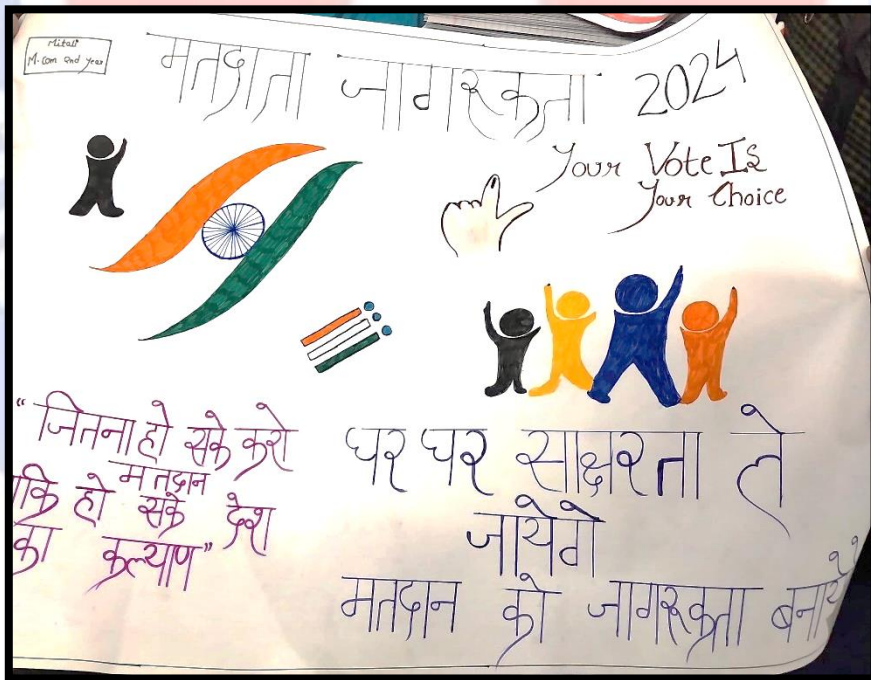 Mitali
M.Com 2nd Year
मतदाता जागरूकता 2024
Your Vote Is
Your Choice
“जितना हो सके करो
मतदान
कि हो सके देश
का कल्याण”
घर घर साक्षरता ले
जायेगे
मतदान को जागरूकता